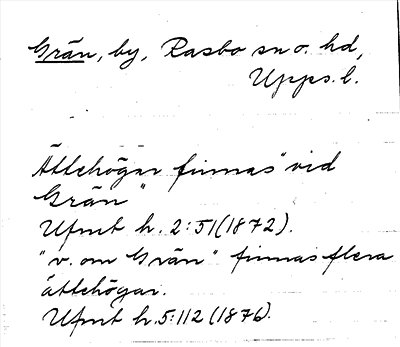 Grän, by, Rasbo sn o. hd,
Upps. l.
Ättehögar finnas "vid
Grän"
Ufmt h. 2:51 (1872).
"v. om Grän" finnas flera
ättehögar.
Ufmt h. 5:112 (1876).